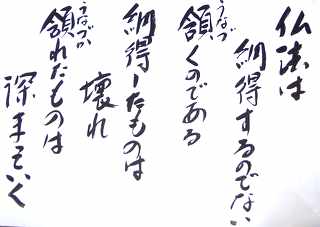 仏法は
納得するのでない
頷くのである
うなづ
納得したものは
壊れ
頷れたものは
うなづか
深まっていく